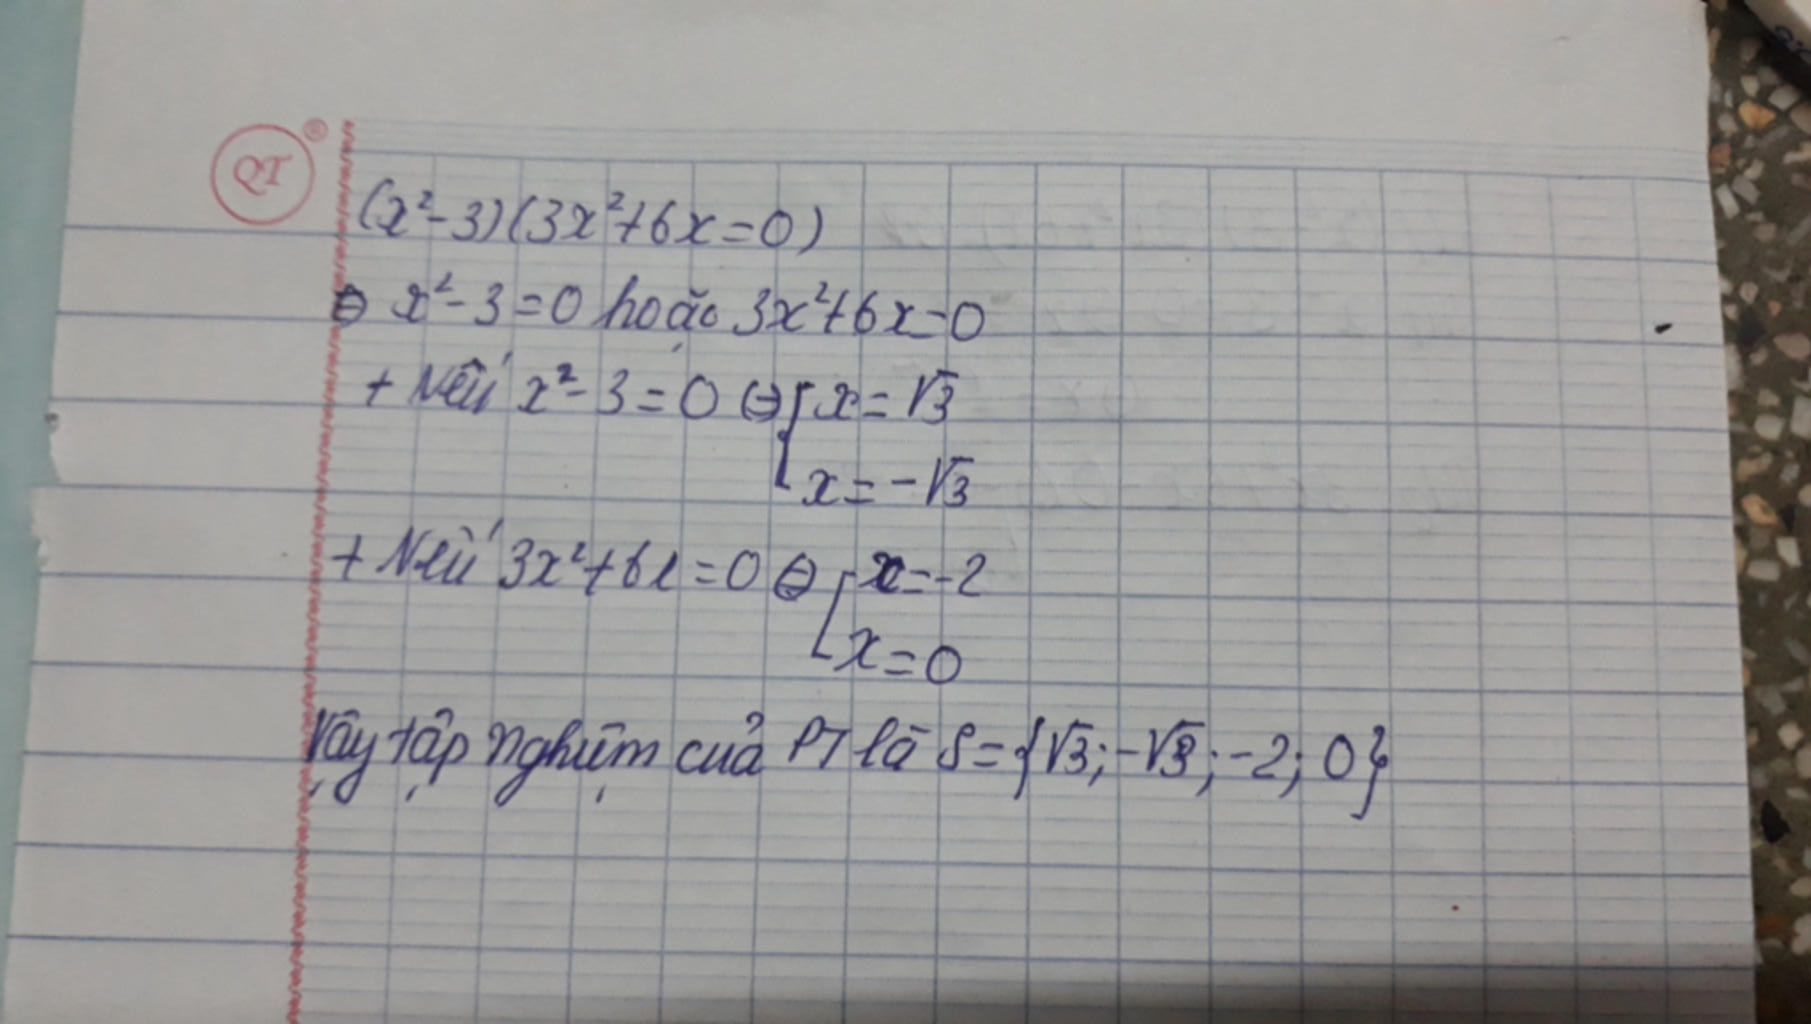 QT ®
(x²-3)(3x²+6x=0)
⇔ x²-3=0 hoặc 3x²+6x=0
+ Nếu x²-3=0 ⇔ [x=√3
x=-√3
+ Nếu 3x²+6x=0 ⇔ [x=-2
x=0
Vậy tập nghiệm của PT là S={√3;-√3;-2;0}